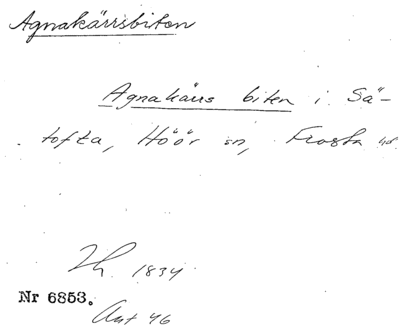 Agnakärrsbiten
Agnakärrs biten i Sä-
tofta, Höör sn, Frosta hd.
Zh. 1834
Nr 6853.
Akt 46